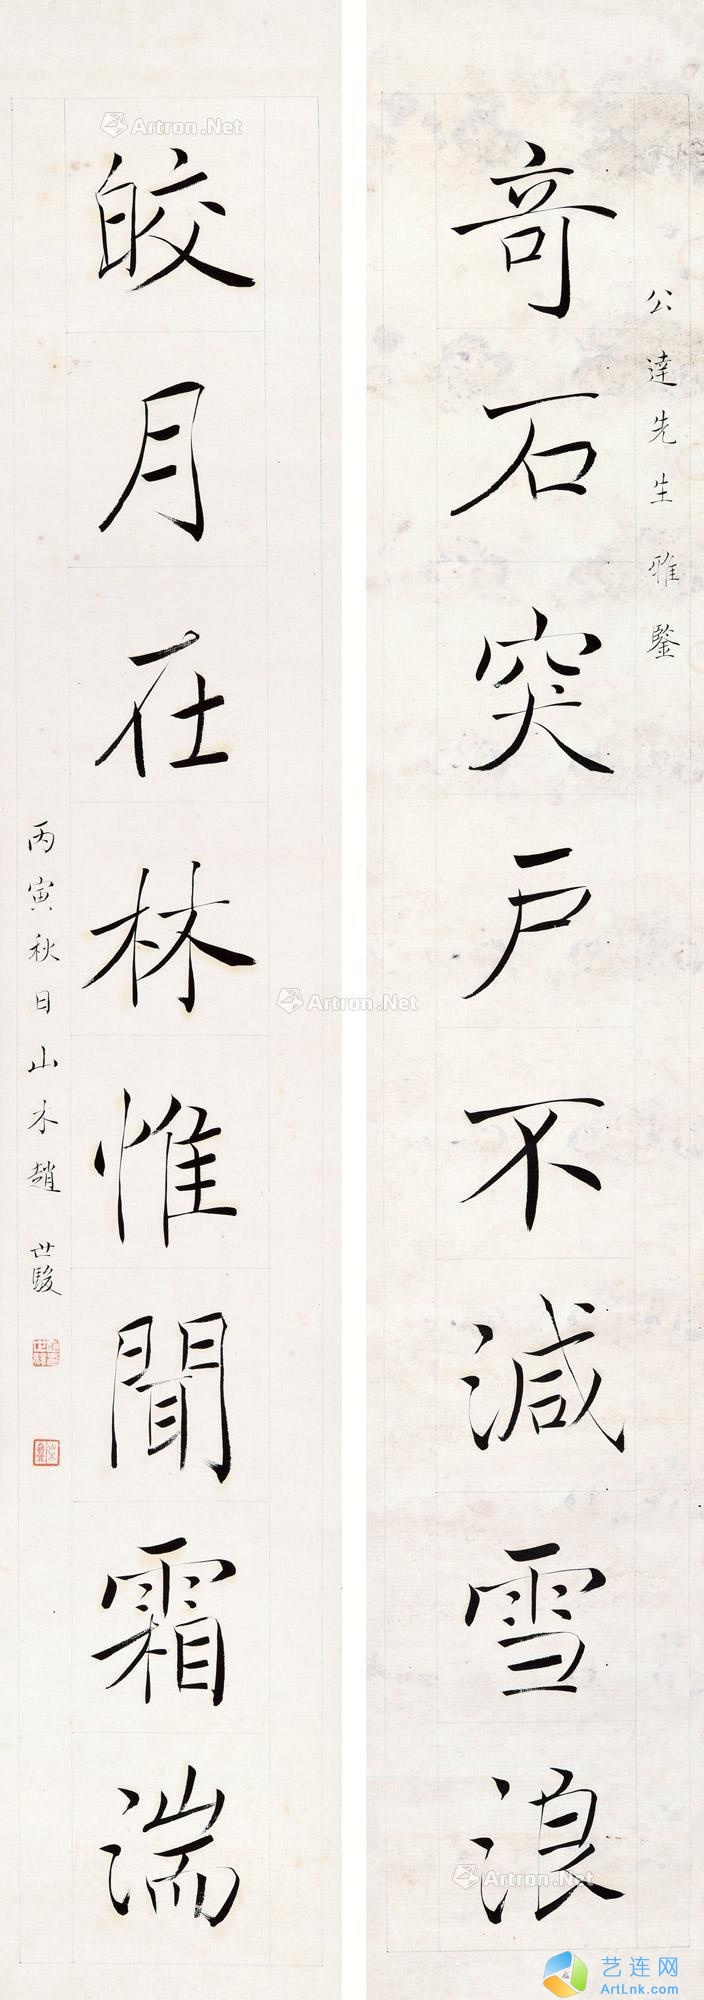 公達先生雅鑒
奇石突戶不減雪浪
皎月在林惟聞霜湍
丙寅秋日山木趙世駿
Artron.Net
Artron.Net
Artron.Net
艺连网
ArtLnk.com